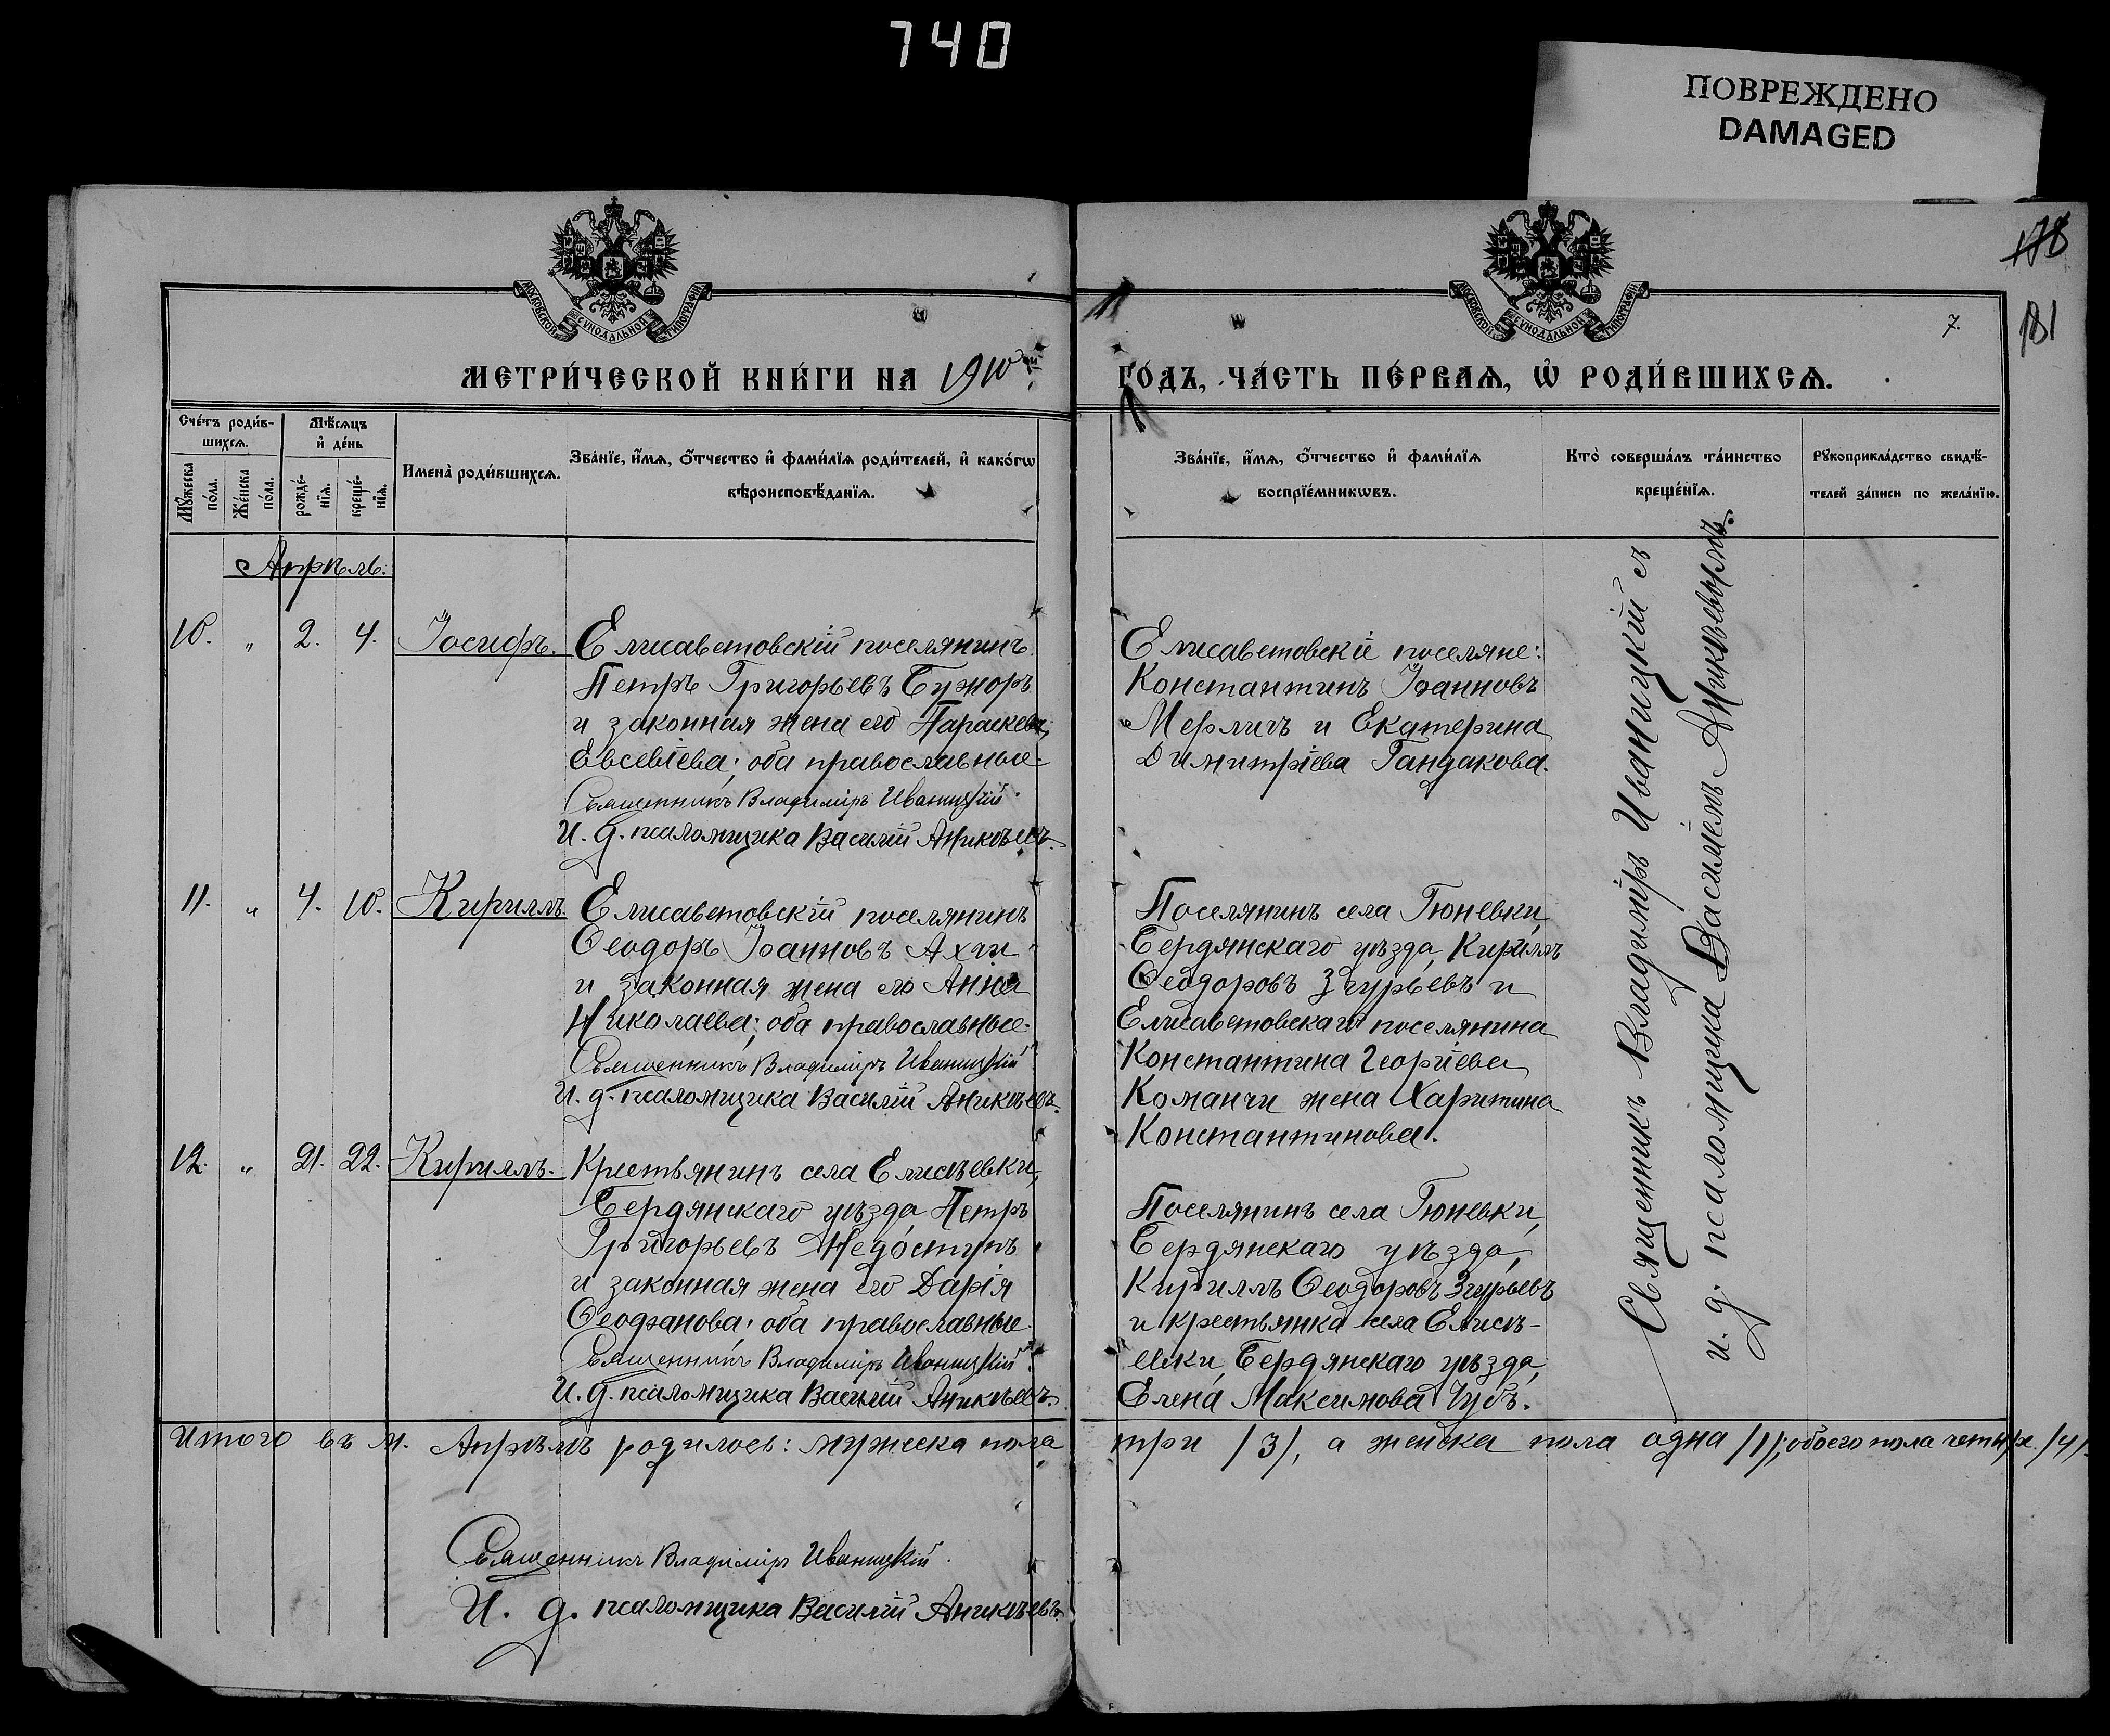 740
ПОВРЕЖДЕНО
DAMAGED
178
181
7.
МОСКОВСКОЙ СУНОДАЛЬНОЙ ТИПОГРАФІИ
МОСКОВСКОЙ СУНОДАЛЬНОЙ ТИПОГРАФІИ
МЕТРИ́ЧЕСКОЙ КНИ́ГИ НА 1910й ГО́ДЪ, ЧА́СТЬ ПЕ́РВАѦ, Ѽ РОДИ́ВШИХСѦ.
Сче́тъ роди́в-
шихсѧ.
Мꙋ́жеска по́ла.
Же́нска по́ла.
Мѣ́сѧцъ
и҆ де́нь
рожде́-
нїѧ.
креще́-
нїѧ.
Имена̀ роди́вшихсѧ.
Зва́нїе, и҆́мѧ, ѻ҆́тчество и҆ фами́лїѧ роди́телей, и҆ како́гѡ
вѣроисповѣ́данїѧ.
Зва́нїе, и҆́мѧ, ѻ҆́тчество и҆ фами́лїѧ
воспрїе́мникѡвъ.
Кто̀ соверша́лъ та́инство
креще́нїѧ.
Рꙋкоприкла́дство свидѣ́-
телей за́писи по жела́нїю.
Апрѣль.
10. " 2. 4. Іосифъ.
Елисаветовскій поселянинъ
Петръ Григорьевъ Бужоръ
и законная жена его Параскева
Евсевіева; оба православные.
Священникъ Владиміръ Иваницкій.
И. д. псаломщика Василій Аникѣевъ.
Елисаветовскіе поселяне:
Константинъ Іоанновъ
Мерличъ и Екатерина
Димитріева Гандакова.
11. " 4. 10. Кириллъ.
Елисаветовскій поселянинъ
Ѳеодоръ Іоанновъ Ахчи
и законная жена его Анна
Николаева; оба православные.
Священникъ Владиміръ Иваницкій
И. д. псаломщика Василій Аникѣевъ.
Поселянинъ села Гюневки,
Бердянскаго уѣзда, Кириллъ
Ѳеодоровъ Згурьевъ и
Елисаветовскаго поселянина
Константина Георгіева
Команчи жена Харитина
Константинова.
12. " 21. 22. Кириллъ.
Крестьянинъ села Елисѣевки,
Бердянскаго уѣзда, Петръ
Григорьевъ Недоступъ
и законная жена его Дарія
Ѳеофанова; оба православные.
Священникъ Владиміръ Иваницкій.
И. д. псаломщика Василій Аникѣевъ.
Поселянинъ села Гюневки,
Бердянскаго уѣзда,
Кириллъ Ѳеодоровъ Згурьевъ
и крестьянка села Елисѣ-
евки, Бердянскаго уѣзда,
Елена Максимова Чубъ.
Священникъ Владиміръ Иваницкій съ
и. д. псаломщика Василіемъ Аникѣевымъ.
Итого въ м. Апрѣлѣ родилось: мужеска пола три /3/, а женска пола одна /1/; обоего пола четыре /4/.
Священникъ Владиміръ Иваницкій.
И. д. псаломщика Василій Аникѣевъ.